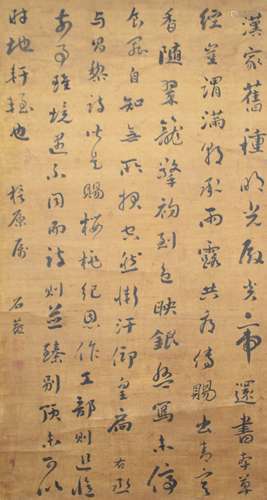 漢家舊種明光殿炎帝還書本草
經豈謂滿朝承雨露共看傳賜出青冥
香隨翠籠擎初到色映銀盤寫未停
食罷自知無所報空然慚汗仰皇扃 右丞
與昌黎詩皆是賜櫻桃紀恩作工部則追憶
前事雖境遇不同而詩則並臻絶頂未可以
時地軒輊也 松原屬 石菴